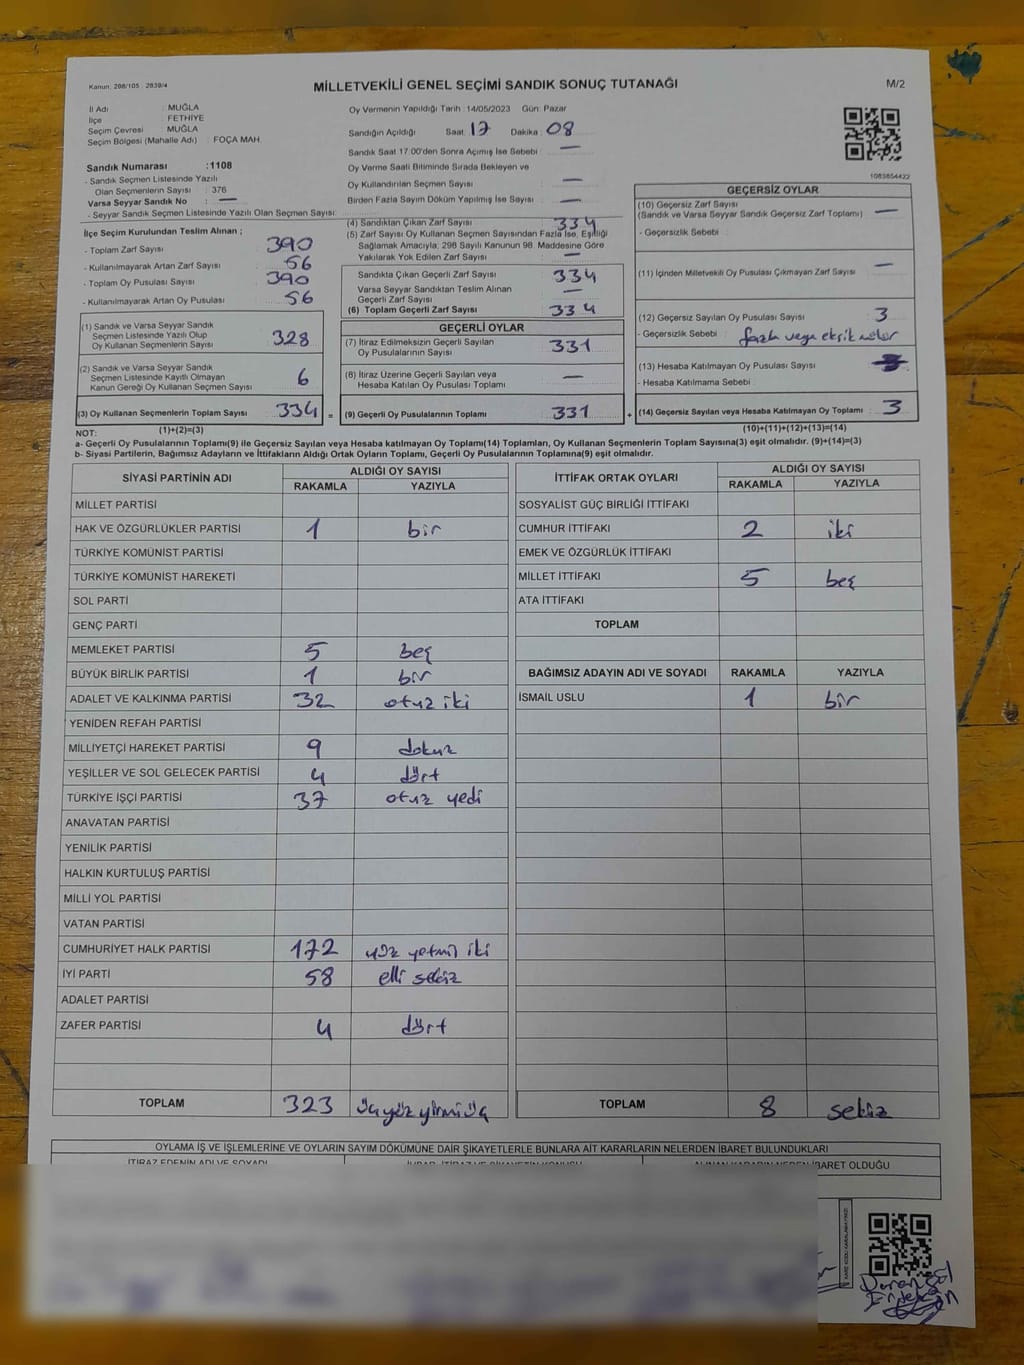 Kanun. 298/105 2839/4
MİLLETVEKİLİ GENEL SEÇİMİ SANDIK SONUÇ TUTANAĞI
M/2
İl Adı : MUĞLA
İlçe : FETHİYE
Seçim Çevresi : MUĞLA
Seçim Bölgesi (Mahalle Adı) : FOÇA MAH.
Oy Vermenin Yapıldığı Tarih :14/05/2023 Gün: Pazar
Sandığın Açıldığı Saat: 17 Dakika: 08
Sandık Saat 17.00'den Sonra Açılmış İse Sebebi : —
Oy Verme Saati Bitiminde Sırada Bekleyen ve
Oy Kullandırılan Seçmen Sayısı : —
Birden Fazla Sayım Döküm Yapılmış İse Sayısı : —
Sandık Numarası :1108
- Sandık Seçmen Listesinde Yazılı
Olan Seçmenlerin Sayısı : 376
Varsa Seyyar Sandık No : —
- Seyyar Sandık Seçmen Listesinde Yazılı Olan Seçmen Sayısı:
İlçe Seçim Kurulundan Teslim Alınan ;
- Toplam Zarf Sayısı : 390
- Kullanılmayarak Artan Zarf Sayısı : 56
- Toplam Oy Pusulası : 390
- Kullanılmayarak Artan Oy Pusulası : 56
(1) Sandık ve Varsa Seyyar Sandık
Seçmen Listesinde Yazılı Olup
Oy Kullanan Seçmenlerin Sayısı : 328
(2) Sandık ve Varsa Seyyar Sandık
Seçmen Listesinde Kayıtlı Olmayan
Kanun Gereği Oy Kullanan Seçmen Sayısı : 6
(3) Oy Kullanan Seçmenlerin Toplam Sayısı : 334 =
(1)+(2)=(3)
(4) Sandıktan Çıkan Zarf Sayısı : 334
(5) Zarf Sayısı Oy Kullanan Seçmen Sayısından Fazla İse, Eşitliği
Sağlamak Amacıyla; 298 Sayılı Kanunun 98. Maddesine Göre
Yakılarak Yok Edilen Zarf Sayısı : —
Sandıkta Çıkan Geçerli Zarf Sayısı : 334
Varsa Seyyar Sandıktan Teslim Alınan
Geçerli Zarf Sayısı : —
(6) Toplam Geçerli Zarf Sayısı : 334
GEÇERLİ OYLAR
(7) İtiraz Edilmeksizin Geçerli Sayılan
Oy Pusulalarının Sayısı : 331
(8) İtiraz Üzerine Geçerli Sayılan veya
Hesaba Katılan Oy Pusulası Toplamı : —
(9) Geçerli Oy Pusulalarının Toplamı : 331 +
1083854422
GEÇERSİZ OYLAR
(10) Geçersiz Zarf Sayısı
(Sandık ve Varsa Seyyar Sandık Geçersiz Zarf Toplamı) : —
- Geçersizlik Sebebi :
(11) İçinden Milletvekili Oy Pusulası Çıkmayan Zarf Sayısı : —
(12) Geçersiz Sayılan Oy Pusulası Sayısı : 3
- Geçersizlik Sebebi : fazla veya eksik
(13) Hesaba Katılmayan Oy Pusulası Sayısı :
- Hesaba Katılmama Sebebi :
(14) Geçersiz Sayılan veya Hesaba Katılmayan Oy Toplamı : 3
(10)+(11)+(12)+(13)=(14)
NOT:
a- Geçerli Oy Pusulalarının Toplamı(9) ile Geçersiz Sayılan veya Hesaba katılmayan Oy Toplamı(14) Toplamları, Oy Kullanan Seçmenlerin Toplam Sayısına(3) eşit olmalıdır. (9)+(14)=(3)
b- Siyasi Partilerin, Bağımsız Adayların ve İttifakların Aldığı Ortak Oyların Toplamı, Geçerli Oy Pusulalarının Toplamına(9) eşit olmalıdır.
SİYASİ PARTİNİN ADI ALDIĞI OY SAYISI
RAKAMLA YAZIYLA
MİLLET PARTİSİ
HAK VE ÖZGÜRLÜKLER PARTİSİ 1 bir
TÜRKİYE KOMÜNİST PARTİSİ
TÜRKİYE KOMÜNİST HAREKETİ
SOL PARTİ
GENÇ PARTİ
MEMLEKET PARTİSİ 5 beş
BÜYÜK BİRLİK PARTİSİ 1 bir
ADALET VE KALKINMA PARTİSİ 32 otuz iki
YENİDEN REFAH PARTİSİ
MİLLİYETÇİ HAREKET PARTİSİ 9 dokuz
YEŞİLLER VE SOL GELECEK PARTİSİ 4 dört
TÜRKİYE İŞÇİ PARTİSİ 37 otuz yedi
ANAVATAN PARTİSİ
YENİLİK PARTİSİ
HALKIN KURTULUŞ PARTİSİ
MİLLİ YOL PARTİSİ
VATAN PARTİSİ
CUMHURİYET HALK PARTİSİ 172 yüz yetmiş iki
İYİ PARTİ 58 elli sekiz
ADALET PARTİSİ
ZAFER PARTİSİ 4 dört
TOPLAM 323 üçyüz yirmi üç
İTTİFAK ORTAK OYLARI ALDIĞI OY SAYISI
RAKAMLA YAZIYLA
SOSYALİST GÜÇ BİRLİĞİ İTTİFAKI
CUMHUR İTTİFAKI 2 iki
EMEK VE ÖZGÜRLÜK İTTİFAKI
MİLLET İTTİFAKI 5 beş
ATA İTTİFAKI
TOPLAM
BAĞIMSIZ ADAYIN ADI VE SOYADI RAKAMLA YAZIYLA
İSMAİL USLU 1 bir
TOPLAM 8 sekiz
OYLAMA İŞ VE İŞLEMLERİNE VE OYLARIN SAYIM DÖKÜMÜNE DAİR ŞİKAYETLERLE BUNLARA AİT KARARLARIN NELERDEN İBARET BULUNDUKLARI
İTİRAZ EDENİN ADI VE SOYADI
ALINAN KARARIN NEDEN İBARET OLDUĞU